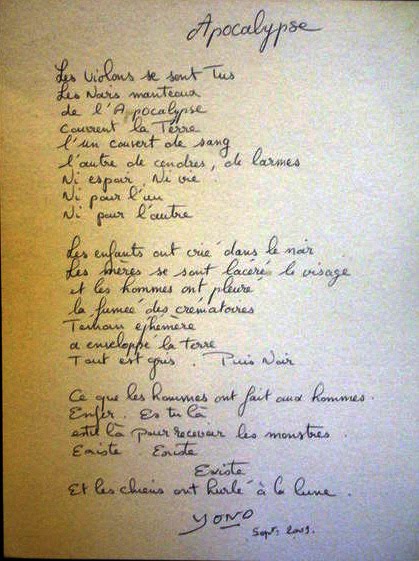 Apocalypse
Les violons se sont tus
Les Noirs manteaux
de l'Apocalypse
couvrent la Terre
l'un couvert de sang
l'autre de cendres, de larmes
Ni espoir, Ni vie.
Ni pour l'un
Ni pour l'autre
Les enfants ont crié dans le noir
Les mères se sont lacéré le visage
et les hommes ont pleuré
la fumée des crématoires
Témoin éphémère
a enveloppé la terre
Tout est gris. Puis Noir
Ce que les hommes ont fait aux hommes.
Enfer. Es tu là
es tu là pour recevoir les monstres.
Existe Existe
Existe
Et les chiens ont hurlé à la lune.
YONO
Sept: 2009.